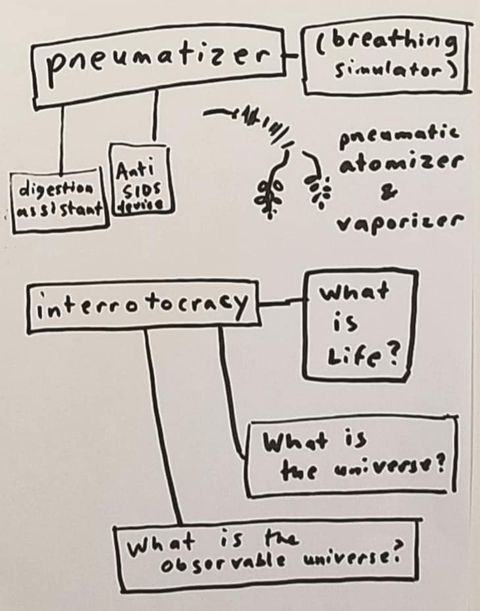 pneumatizer
(breathing
simulator)
digestion
assistant
Anti
SIDS
device
pneumatic
atomizer
&
vaporizer
interrotocracy
What
is
Life?
What is
the universe?
What is the
observable universe?